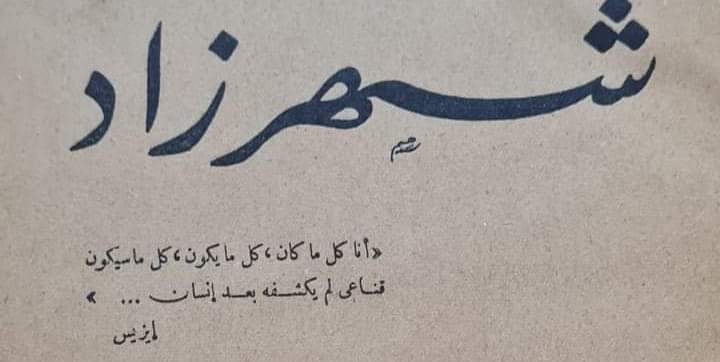 شهرزاد
رحيم
«أنا كل ما كان ، كل ما يكون ، كل ما سيكون
قناعى لم يكشفه بعد إنسان ... »
إيزيس